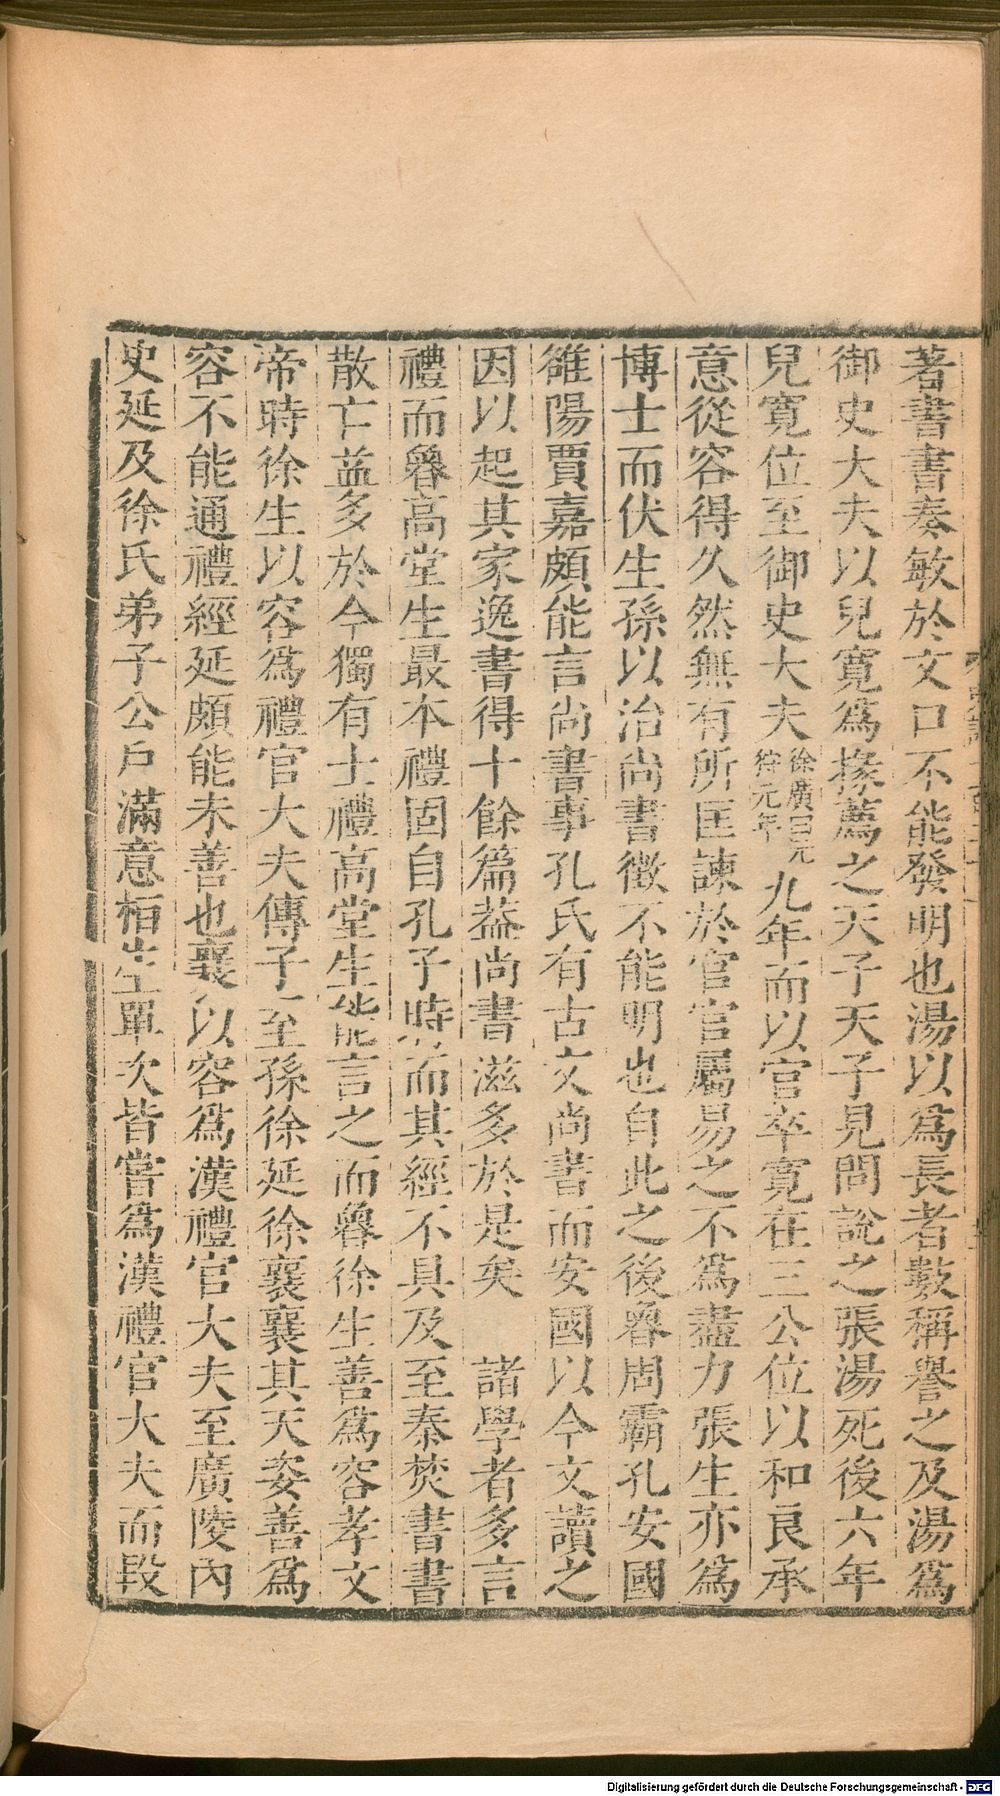 著書書奏敏於文口不能發明也湯以為長者數稱譽之及湯為
御史大夫以兒寬為掾薦之天子天子見問說之張湯死後六年
兒寬位至御史大夫徐廣曰元狩元年九年而以官卒寬在三公位以和良承
意從容得久然無有所匡諫於官官屬易之不為盡力張生亦為
博士而伏生孫以治尚書徵不能明也自此之後魯周霸孔安國
雒陽賈嘉頗能言尚書事孔氏有古文尚書而安國以今文讀之
因以起其家逸書得十餘篇葢尚書滋多於是矣　諸學者多言
禮而魯高堂生最本禮固自孔子時而其經不具及至秦焚書書
散亡益多於今獨有士禮高堂生能言之而魯徐生善為容孝文
帝時徐生以容為禮官大夫傳子至孫徐延徐襄襄其天姿善為
容不能通禮經延頗能未善也襄以容為漢禮官大夫至廣陵內
史延及徐氏弟子公戶滿意栢生單次皆嘗為漢禮官大夫而段
Digitalisierung gefördert durch die Deutsche Forschungsgemeinschaft - DFG